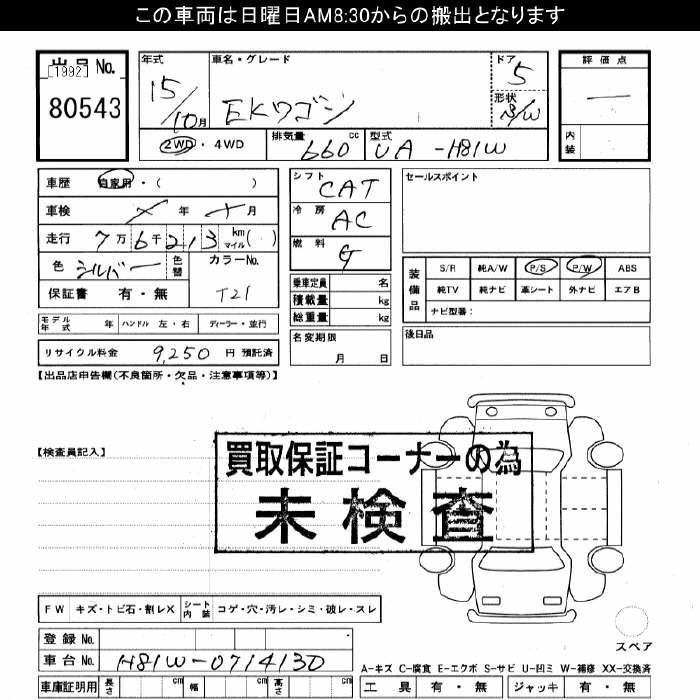 この車両は日曜日AM8:30からの搬出となります
出品 No.
[1992]
80543
年式 車名・グレード ドア 評価点
15/10月 EKワゴン 5 —
形状 5/W
2WD・4WD 排気量 660 cc 型式 UA -H81W 内装
車歴 自家用・( ) シフト CAT セールスポイント
車検 年 月 冷房 AC
走行 7万6千213 km マイル( ) 燃料 G
色 シルバー 色替 カラーNo. T21
装備品 S/R 純A/W P/S P/W ABS
保証書 有・無 乗車定員 名 純TV 純ナビ 革シート 外ナビ エアB
積載量 kg ナビ型番：
モデル年式 年 ハンドル 左・右 ディーラー・並行 総重量 kg
リサイクル料金 9,250 円 預託済 名変期限 月 日 後日品
【出品店申告欄(不良箇所・欠品・注意事項等)】
【検査員記入】
買取保証コーナーの為
未検査
FW キズ・トビ石・割レX シート内装 コゲ・穴・汚レ・シミ・破レ・スレ
スペア
登録 No.
車台 No. H81W-0714130
A-キズ C-腐食 E-エクボ S-サビ U-凹ミ W-補修 XX-交換済
車庫証明用 長さ cm 幅 cm 高さ cm 工具 有・無 ジャッキ 有・無